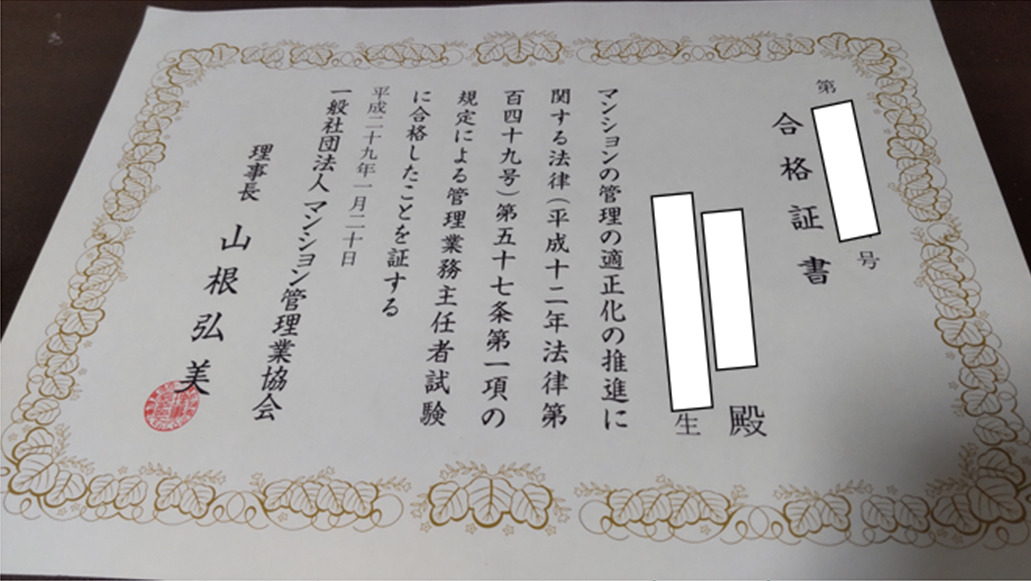 第 号
合格証書
殿
生
マンションの管理の適正化の推進に
関する法律（平成十二年法律第
百四十九号）第五十七条第一項の
規定による管理業務主任者試験
に合格したことを証する
平成二十九年一月二十日
一般社団法人マンション管理業協会
理事長 山根弘美